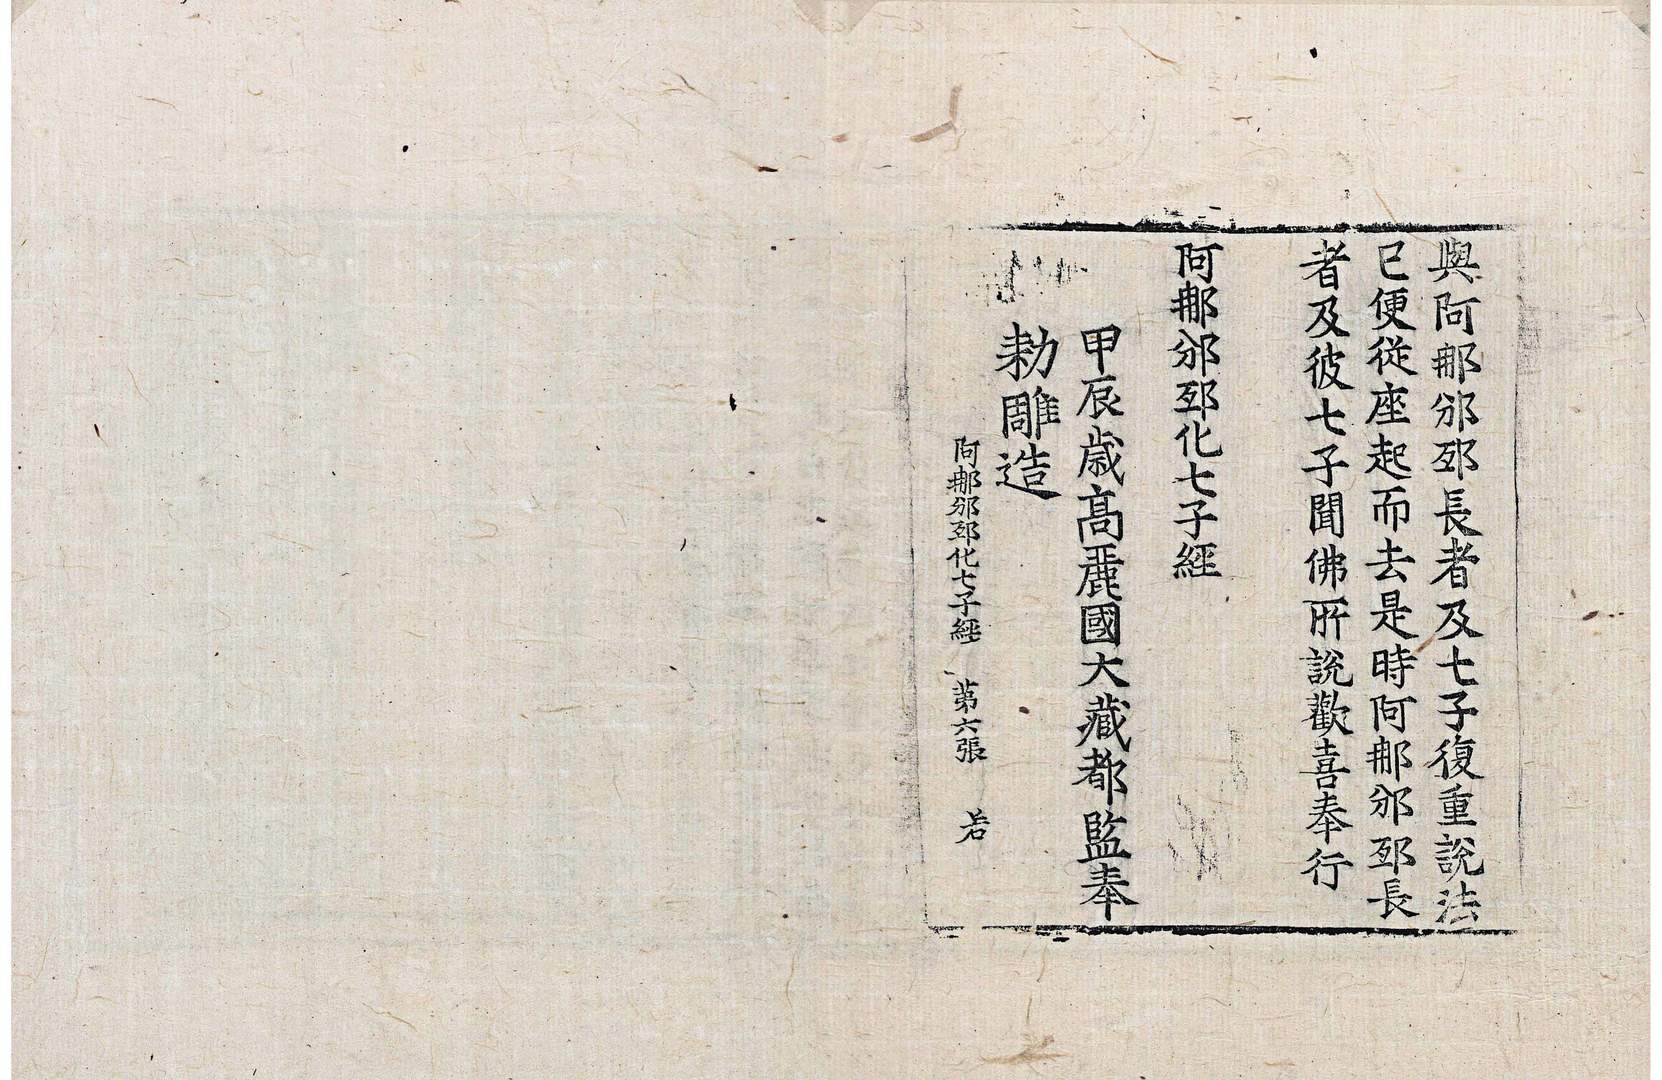 與阿那邠邸長者及七子復重說法
已便從座起而去是時阿那邠邸長
者及彼七子聞佛所說歡喜奉行
阿那邠邸化七子經
甲辰歳高麗國大藏都監奉
勅雕造
阿那邠邸化七子經 第六張 若